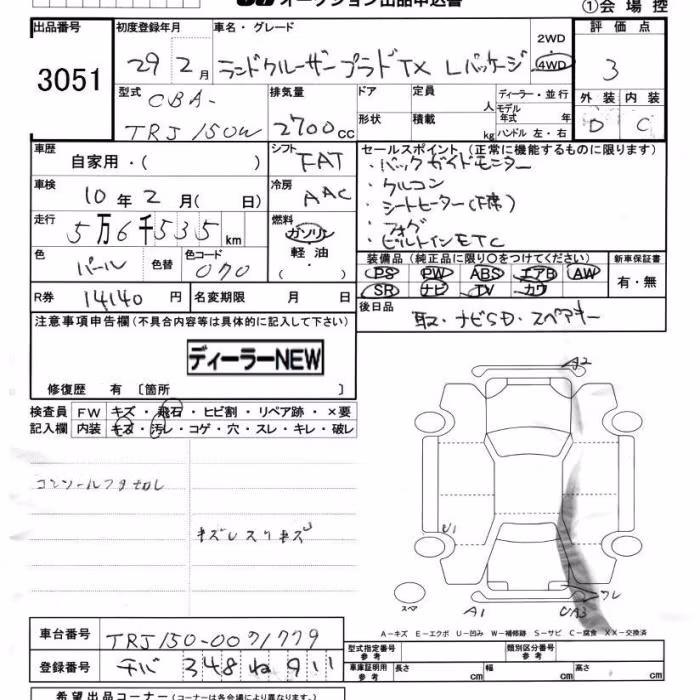 オークション出品申込書
①会場控
出品番号 3051
初度登録年月 29年 2月
車名・グレード ランドクルーザープラド TX Lパッケージ
2WD 4WD
評価点 3
外装 D 内装 C
型式 CBA-TRJ150W
排気量 2700cc
ドア 形状
定員 人 積載 kg
ディーラー・並行
モデル年式 年
ハンドル 左・右
車歴 自家用・( )
シフト FAT
車検 10年 2月( 日)
冷房 AAC
走行 5万6千535km
燃料 ガソリン 軽油
色 パール 色替 色コード 070
セールスポイント(正常に機能するものに限ります)
・バックガイドモニター
・クルコン
・シートヒーター
・フォグ
・ビルトインETC
装備品(純正品に限り○をつけてください)
PS PW ABS エアB AW
SR ナビ TV カワ
新車保証書 有・無
R券 14140円 名変期限 月 日
後日品 取・ナビSD・スペアキー
注意事項申告欄(不具合内容等は具体的に記入して下さい)
ディーラーNEW
修復歴 有 〔箇所 〕
検査員記入欄 FW キズ・飛石・ヒビ割・リペア跡・×要
内装 キズ・汚レ・コゲ・穴・スレ・キレ・破レ
A2
U1
スペア
A1
UA3
A-キズ E-エクボ U-凹み W-補修跡 S-サビ C-腐食 XX-交換済
車台番号 TRJ150-0071779
登録番号 チバ 348 ね 911
型式指定番号 参考
類別区分番号 参考
車庫証明用 参考 長さ cm 幅 cm 高さ cm
希望出品コーナー(名称は各会場により異なります)